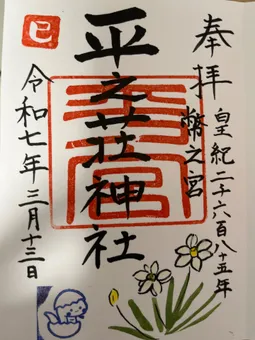 奉拝
皇紀二千六百八十五年
幣之宮
平之荘神社
令和七年三月十三日
巳